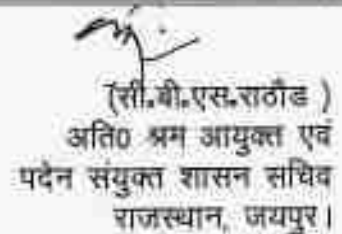 (सी.बी.एस.राठौड )
अति0 श्रम आयुक्त एवं
पदेन संयुक्त शासन सचिव
राजस्थान, जयपुर।